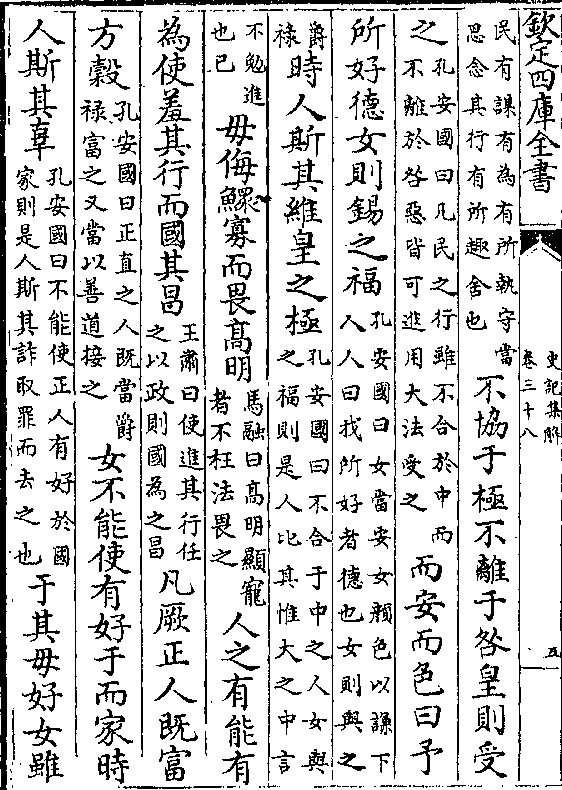 欽定四庫全書
史記集解
卷三十八
五
民有謀有為有所執守當
思念其行有所趣舍也
不協于極不離于咎皇則受
之
孔安國曰凡民之行雖不合於中而
不離於咎惡皆可進用大法受之
而安而色曰予
所好德女則錫之福
孔安國曰女當安女顏色以謙下
人人曰我所好者德也女則與之
爵
祿
時人斯其維皇之極
孔安國曰不合于中之人女與
之福則是人比其惟大之中言
不勉進
也已
毋侮鰥寡而畏高明
馬融曰高明顯寵
者不枉法畏之
人之有能有
為使羞其行而國其昌
王肅曰使進其行任
之以政則國為之昌
凡厥正人既富
方穀
孔安國曰正直之人既當爵
祿富之又當以善道接之
女不能使有好于而家時
人斯其辜
孔安國曰不能使正人有好於國
家則是人斯其詐取罪而去之也
于其毋好女雖